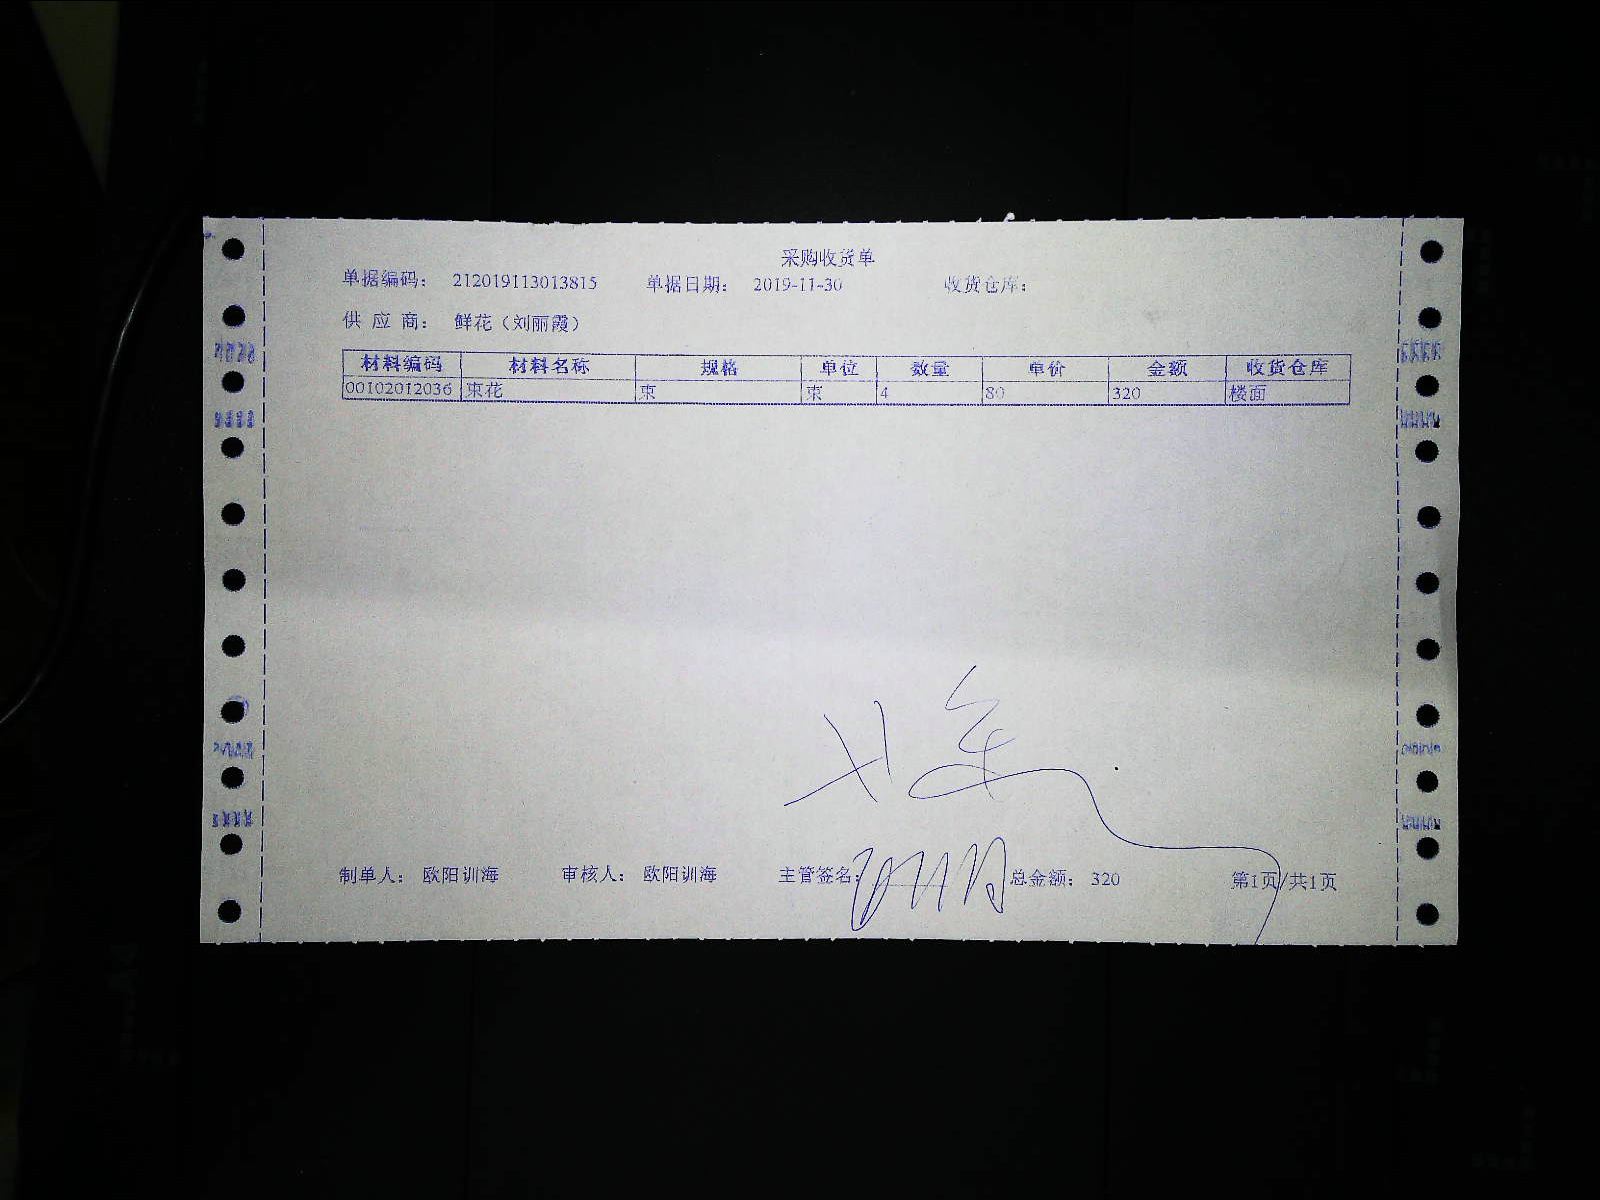 采购收货单
单据编码： 212019113013815 单据日期： 2019-11-30 收货仓库：
供 应 商： 鲜花（刘丽霞）
材料编码 材料名称 规格 单位 数量 单价 金额 收货仓库
00102012036 束花 束 束 4 80 320 楼面
制单人： 欧阳训海 审核人： 欧阳训海 主管签名： 总金额： 320 第1页/共1页